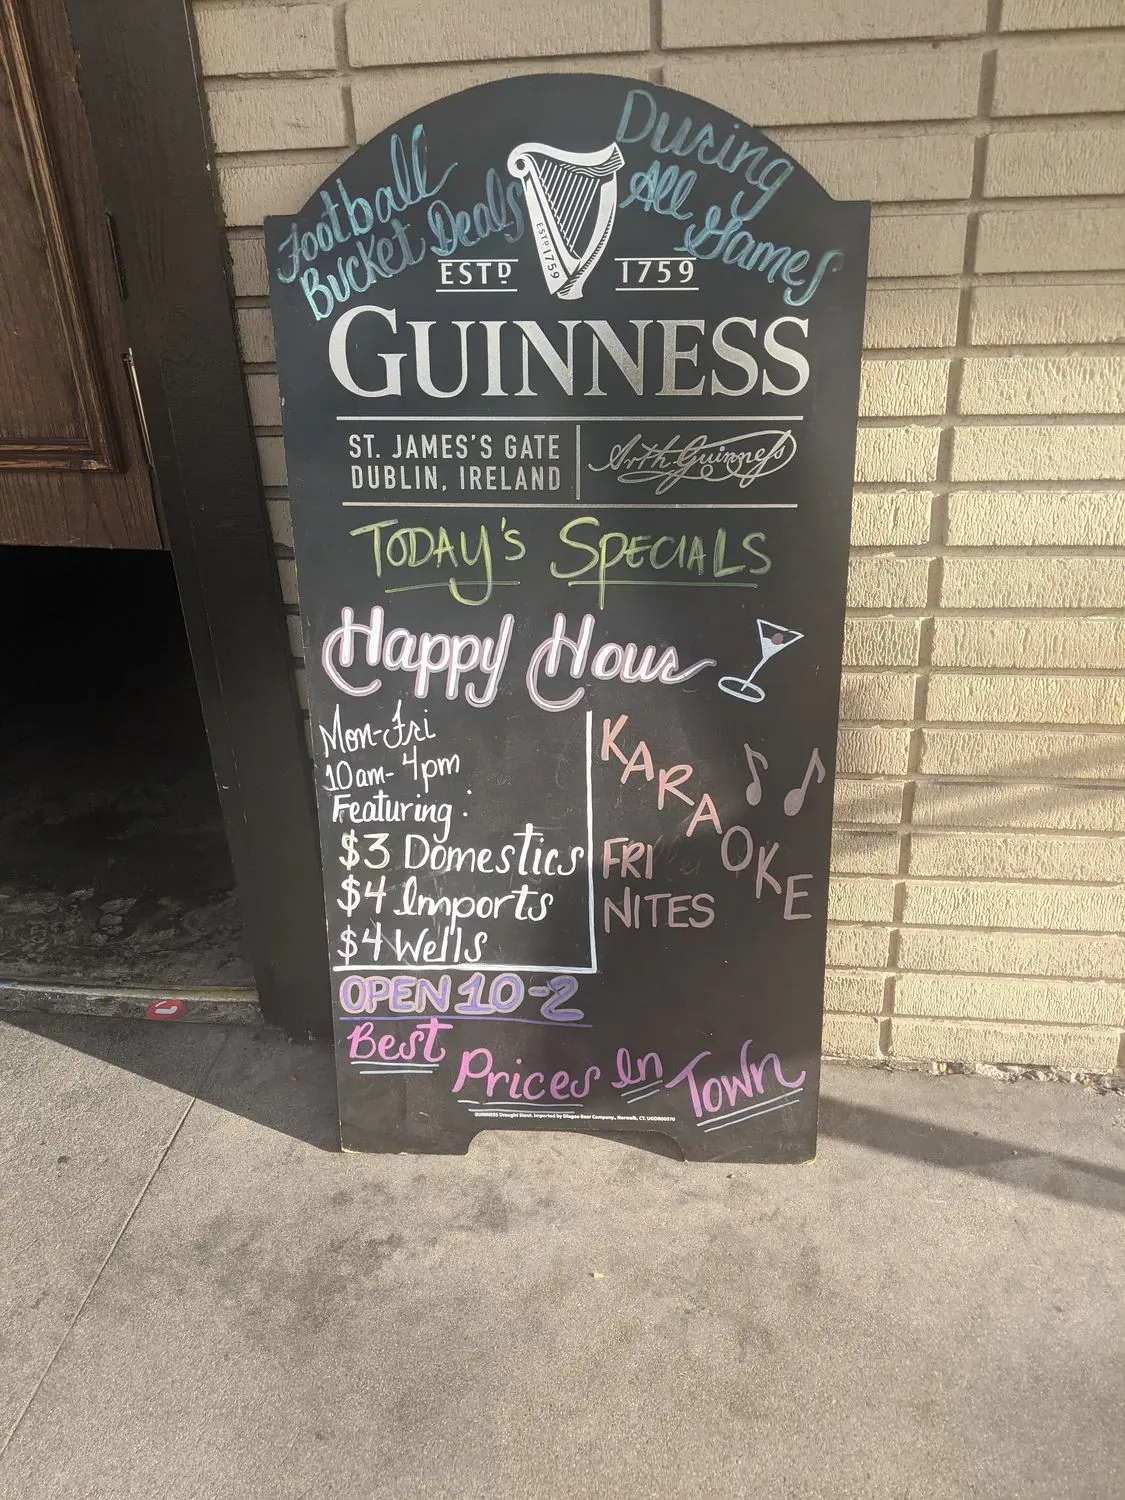 Football
Bucket Deals
During
All Games
ESTD 1759
ESTD 1759
GUINNESS
ST. JAMES'S GATE
DUBLIN, IRELAND
Arth Guinness
TODAY'S SPECIALS
Happy Hour
Mon-Fri
10am-4pm
Featuring:
$3 Domestics
$4 Imports
$4 Wells
KARAOKE
FRI
NITES
OPEN 10-2
Best Prices In Town
GUINNESS Draught Stout. Imported by Diageo Beer Company, Norwalk, CT.